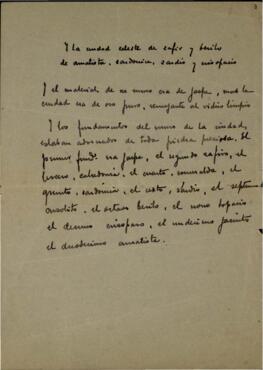 Y la ciudad celeste de zafir y berilo
de amatista, sardonica, sardio y crisopacio
Y el material de su muro era de jaspe, mas la
ciudad era de oro puro, semejante al vidrio limpio
Y los fundamentos del muro de la ciudad,
estaban adornados de toda piedra preciosa. El
primer fund.º era jaspe, el segundo zafiro, el
tercero, calcedonia, el cuarto, esmeralda, el
quinto, sardonica, el sexto, sardio, el septimo
crisolito, el octavo berilo, el nono topacio
el decimo crisopaso, el undecimo jacinto
el duodecimo amatista.